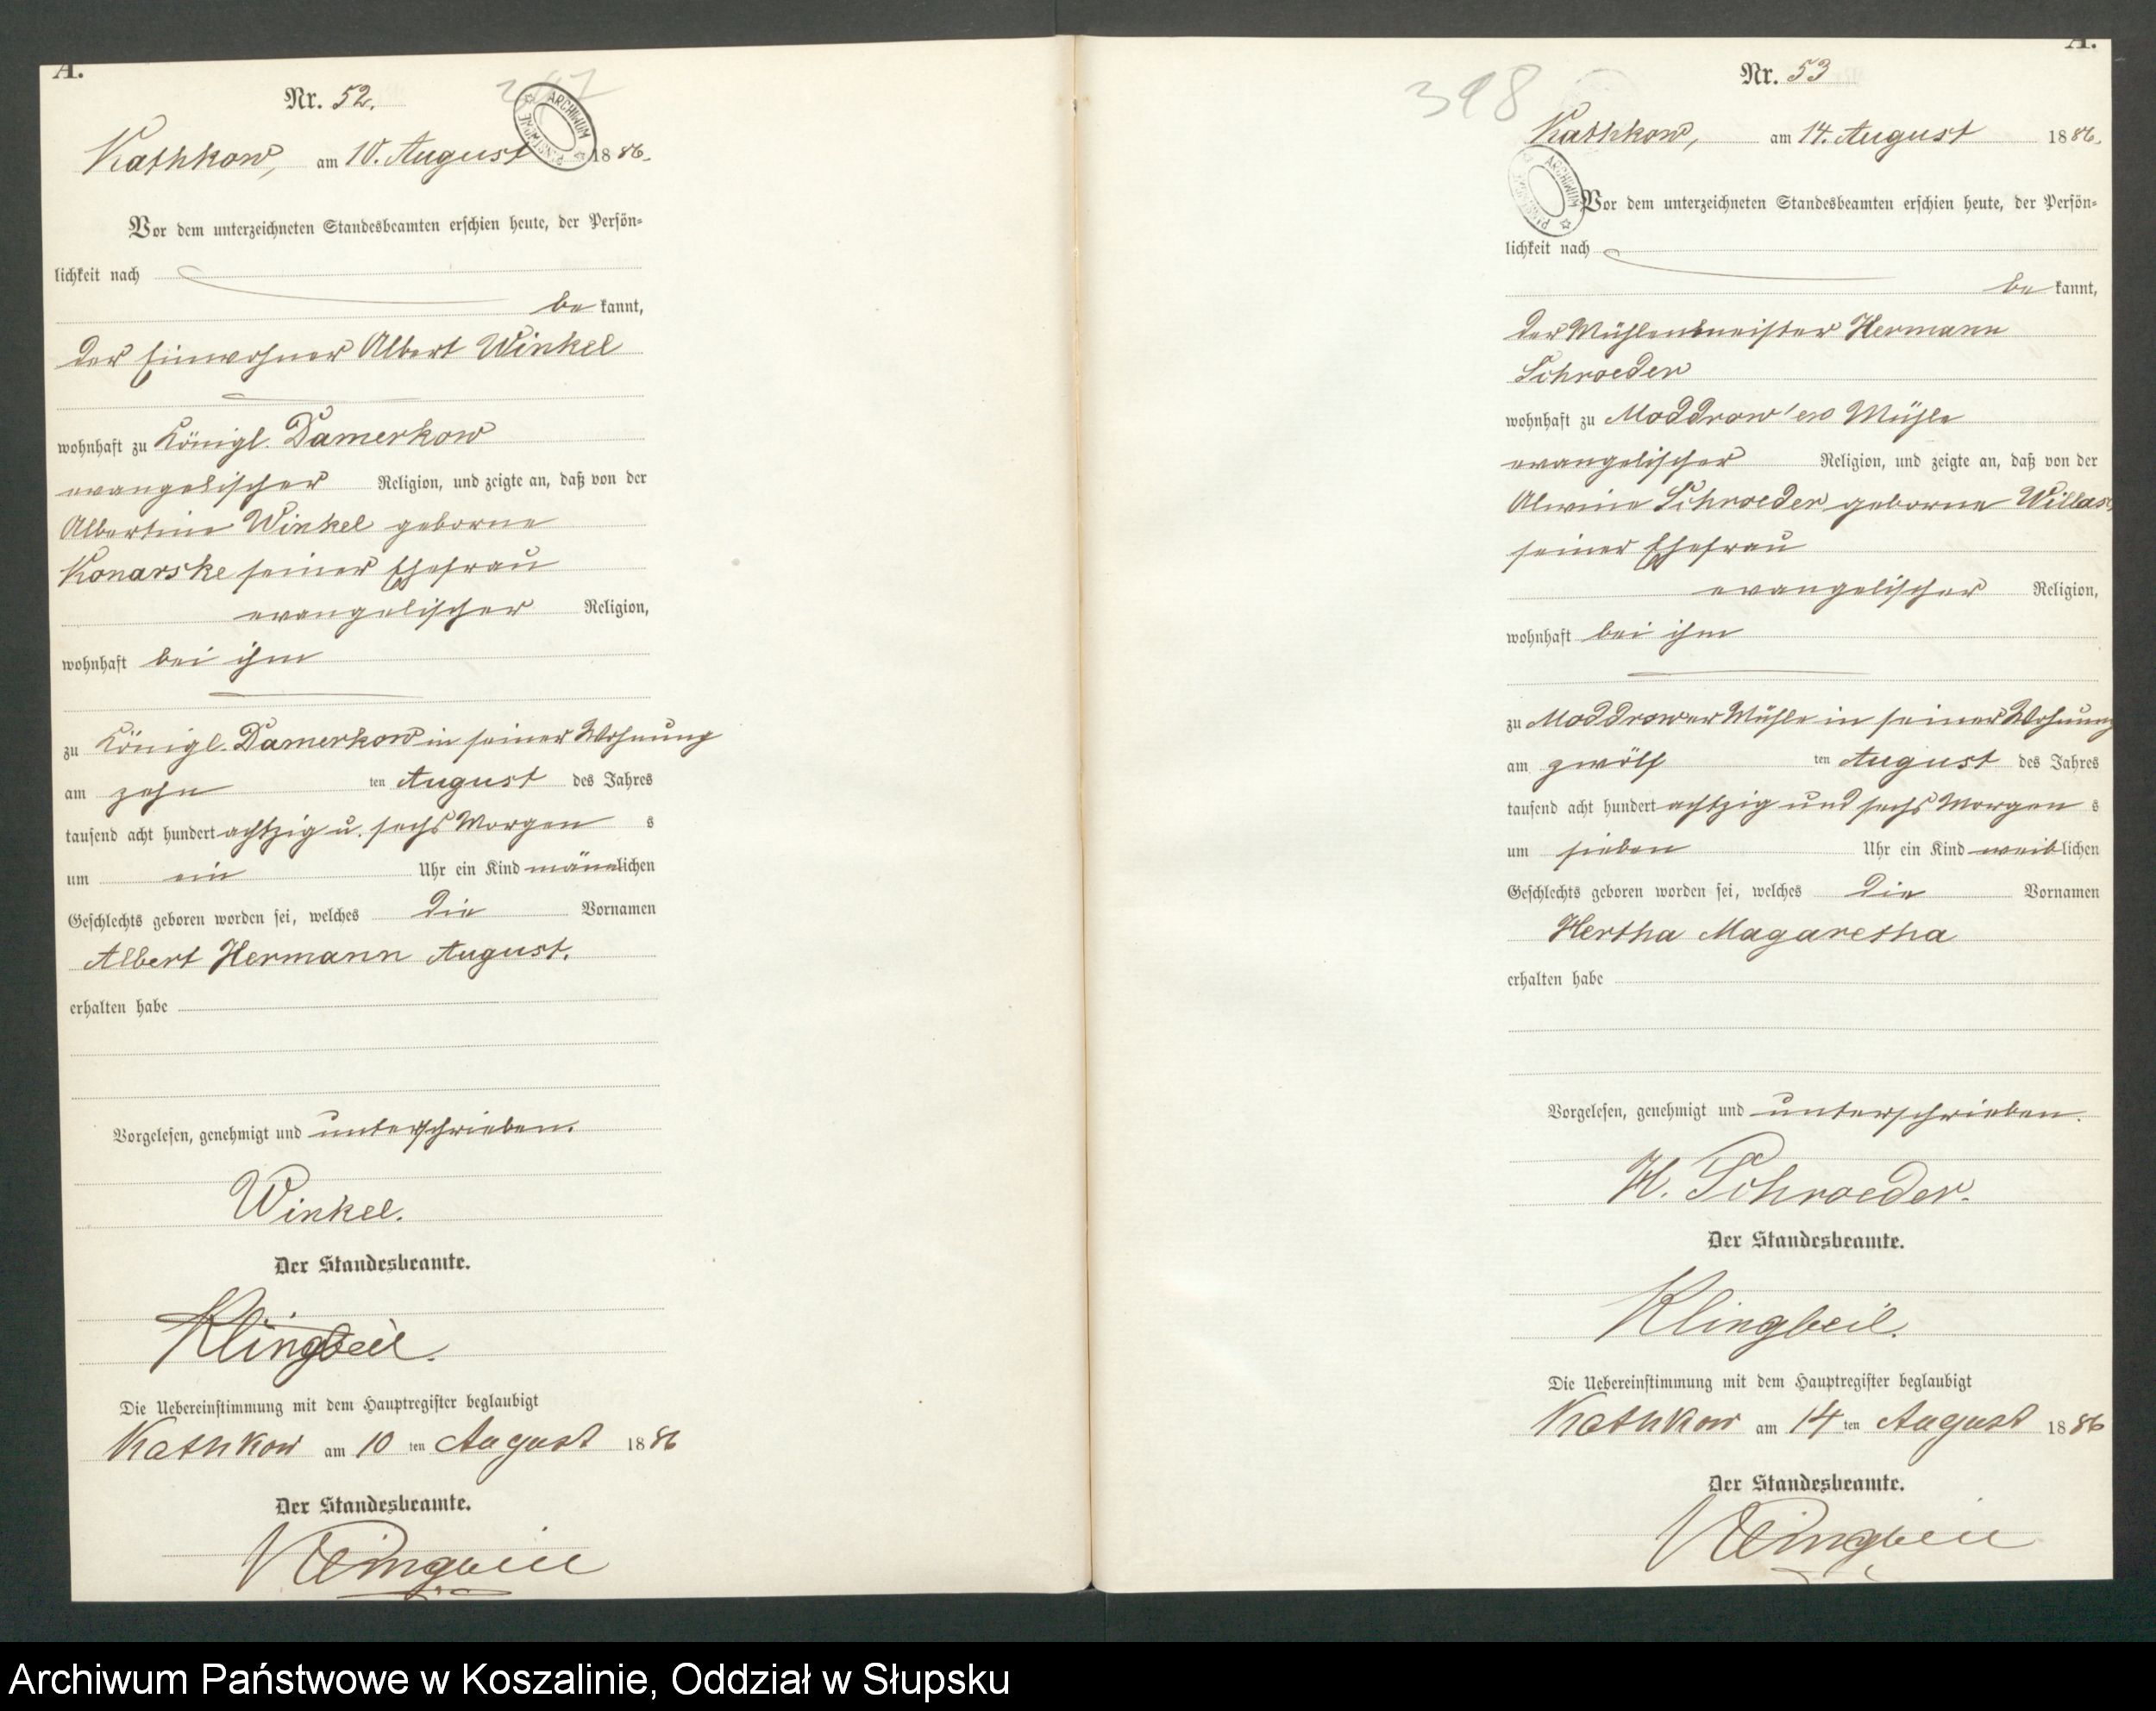 A.
Nr. 52.
Kathkow, am 10. August 1886.
Vor dem unterzeichneten Standesbeamten erschien heute, der Persön-
lichkeit nach
be kannt,
der Einwohner Albert Winkel
wohnhaft zu Königl. Damerkow
evangelischer Religion, und zeigte an, daß von der
Albertine Winkel geborne
Konarske seiner Ehefrau
evangelischer Religion,
wohnhaft bei ihm
zu Königl. Damerkow in seiner Wohnung
am zehn ten August des Jahres
tausend acht hundert achtzig u. sechs Morgen s
um ein Uhr ein Kind männlichen
Geschlechts geboren worden sei, welches die Vornamen
Albert Hermann August.
erhalten habe
Vorgelesen, genehmigt und unterschrieben.
Winkel.
Der Standesbeamte.
Klingbeil.
Die Uebereinstimmung mit dem Hauptregister beglaubigt
Kathkow am 10 ten August 1886
Der Standesbeamte.
Klingbeil
A.
398
Nr. 53
Kathkow, am 14. August 1886.
Vor dem unterzeichneten Standesbeamten erschien heute, der Persön-
lichkeit nach
be kannt,
der Mühlenmeister Hermann
Schroeder
wohnhaft zu Moddrow'er Mühle
evangelischer Religion, und zeigte an, daß von der
Alwine Schroeder geborne Willas
seiner Ehefrau
evangelischer Religion,
wohnhaft bei ihm
zu Moddrower Mühle in seiner Wohnung
am zwölf ten August des Jahres
tausend acht hundert achtzig und sechs Morgen s
um sieben Uhr ein Kind weiblichen
Geschlechts geboren worden sei, welches die Vornamen
Hertha Magaretha
erhalten habe
Vorgelesen, genehmigt und unterschrieben.
H. Schroeder.
Der Standesbeamte.
Klingbeil.
Die Uebereinstimmung mit dem Hauptregister beglaubigt
Kathkow am 14 ten August 1886
Der Standesbeamte.
Klingbeil
Archiwum Państwowe w Koszalinie, Oddział w Słupsku